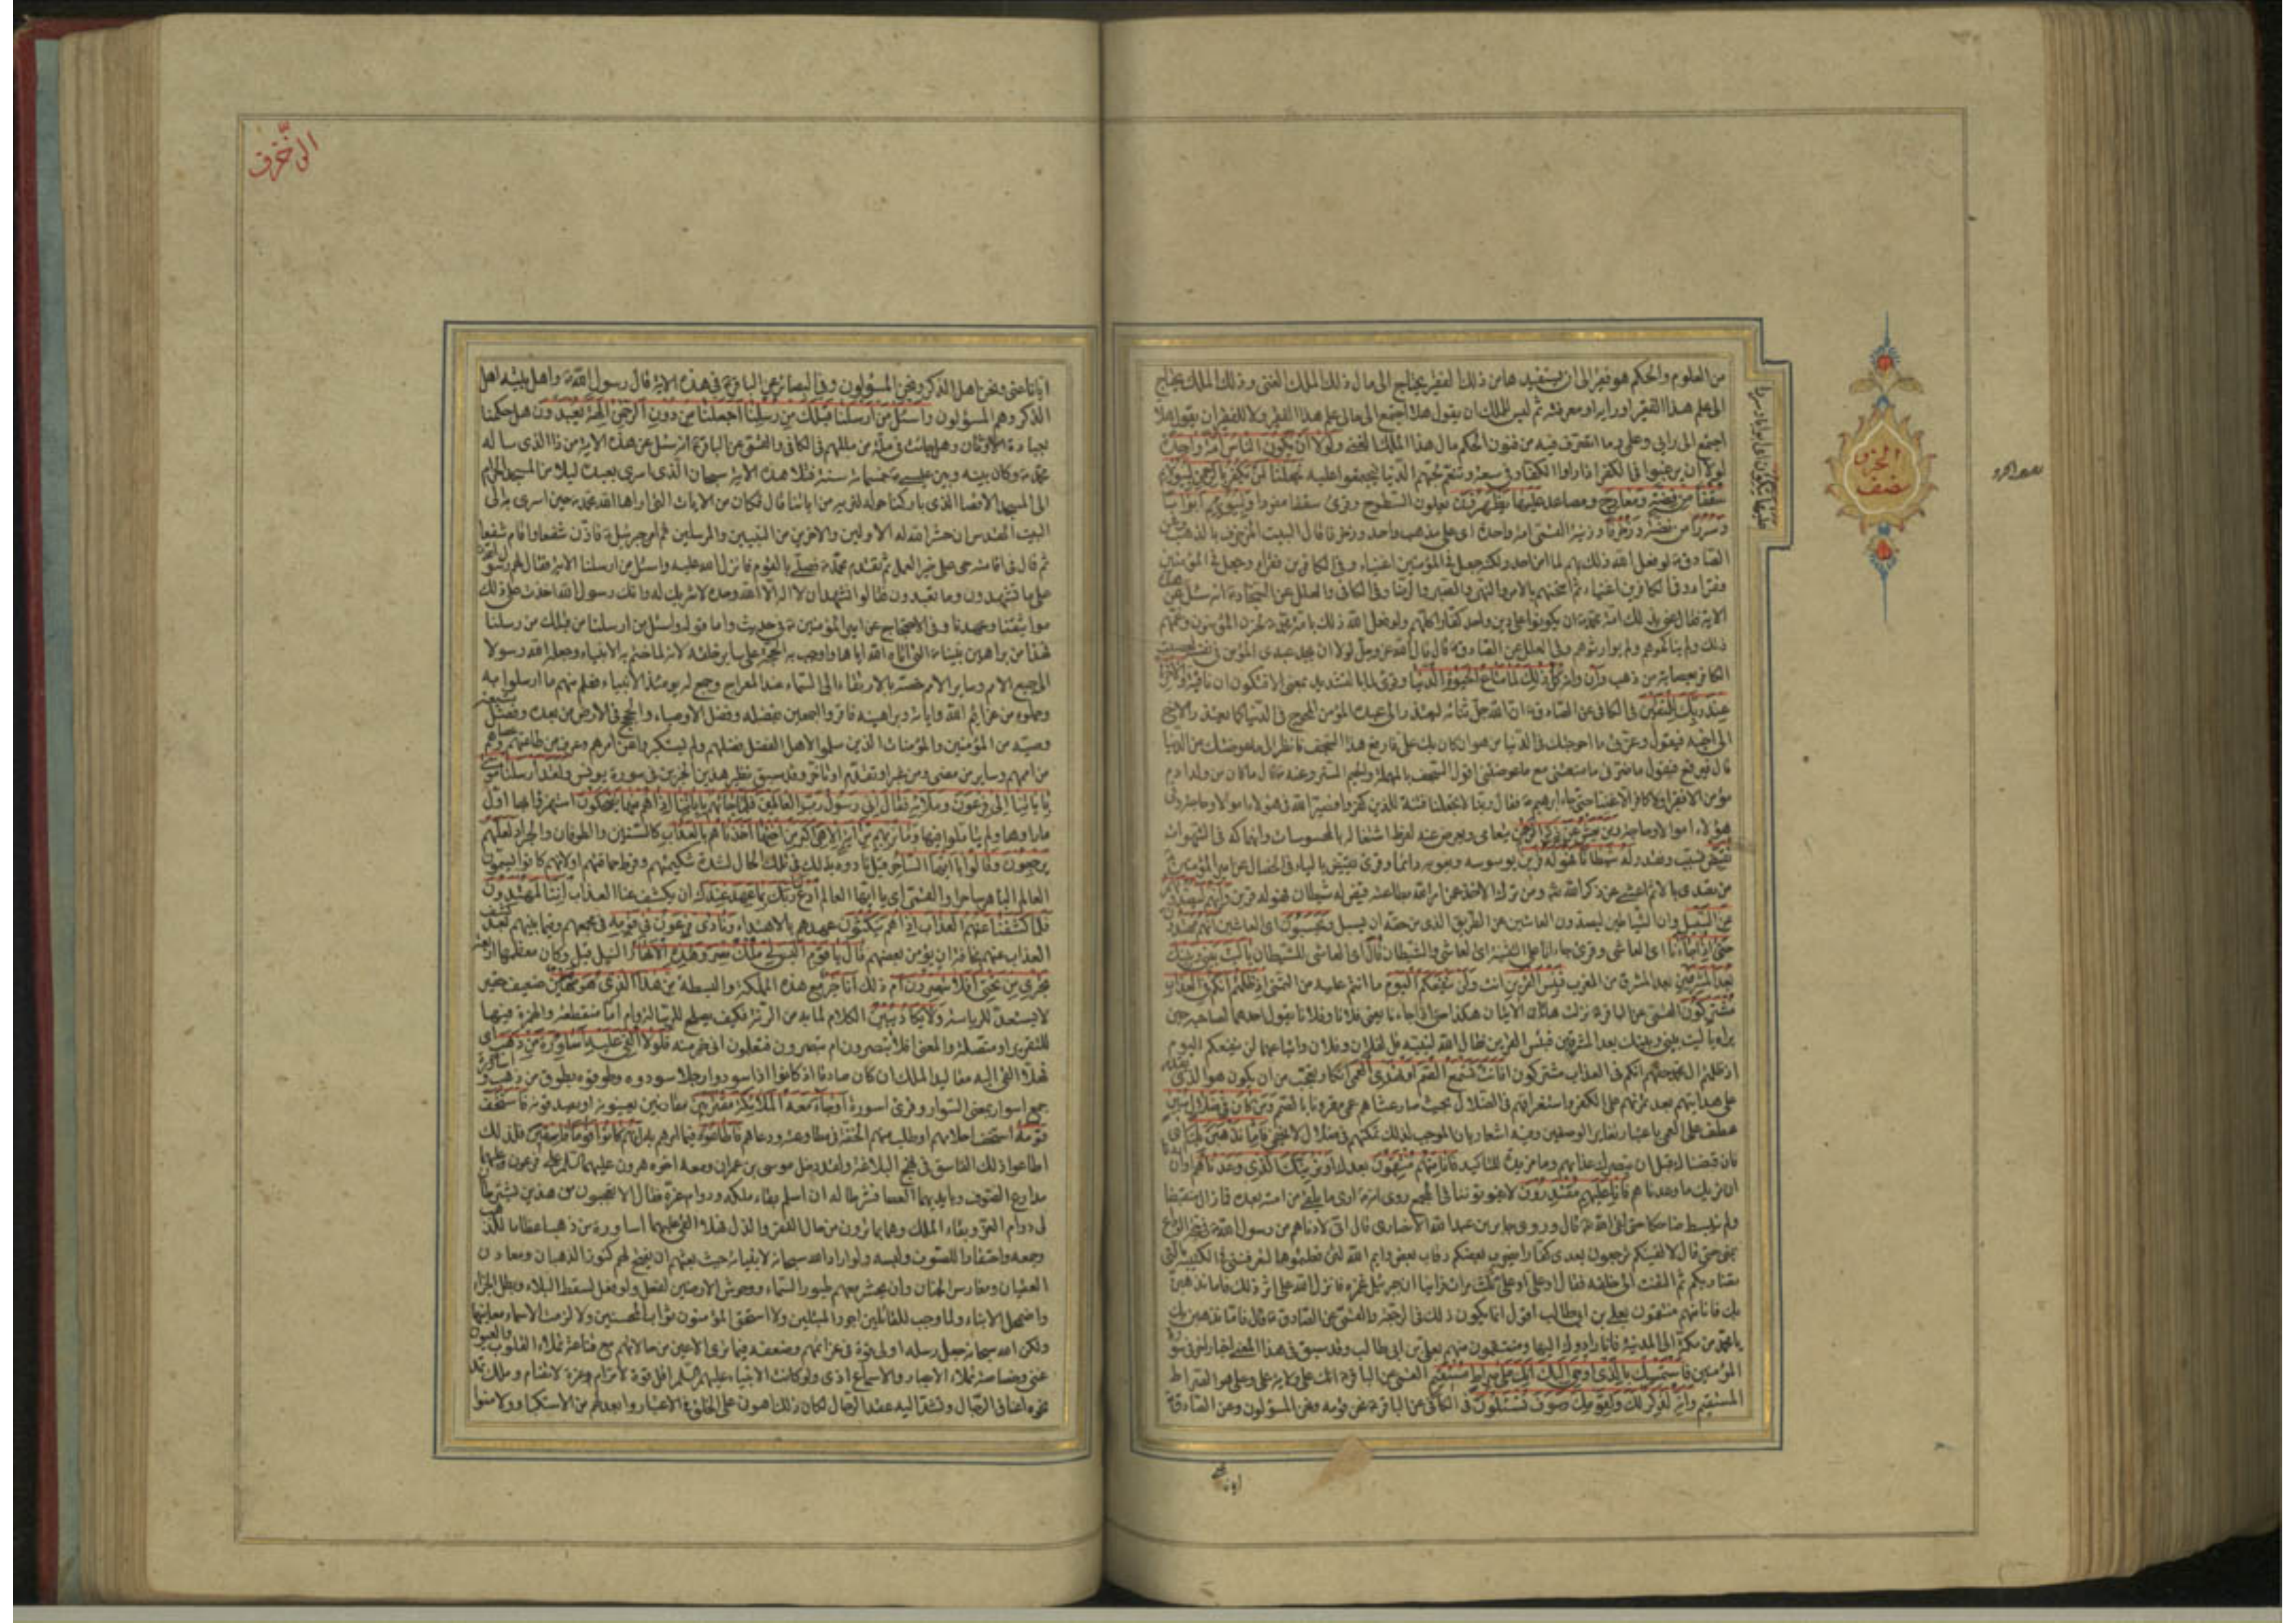 من العلوم والحكم هو فقير إلى أن يستفيدها من ذلك الفقير يحتاج إلى مال ذلك الملك الغني وذلك الملك يحتاج
إلى علم هذا الفقير أو رأيه أو معرفته ثم ليس للملك أن يقول هلا اجتمع إلى مالي علم هذا الفقير ولا للفقير أن يقول هلا
اجتمع إلى رأيي وعلمي وما أتصرف فيه من فنون الحكم مال هذا الملك الغني ولولا أن يكون الناس أمة واحدة
لولا أن يرغبوا في الكفر إذا رأوا الكفار في سعة وتنعم لحبهم الدنيا فيجتمعوا عليه لجعلنا لمن يكفر بالرحمن لبيوتهم
سقفا من فضة ومعارج ومصاعد عليها يظهرون يعلون السطوح وقرئ سقفا مفردا ولبيوتهم أبوابا
وسررا من فضة وزخرفا وزينة القمي أمة واحدة أي على مذهب واحد وزخرفا قال البيت المزخرف بالذهب وعن
الصادق لو فعل الله ذلك بهم لما آمن أحد ولكنه جعل في المؤمنين أغنياء وفي الكافرين فقراء وجعل في المؤمنين
وفقراء وفي الكافرين أغنياء ثم امتحنهم بالأمر والنهي والصبر والرضا وفي الكافي والعلل عن السجاد أنه سئل عن هذه
الآية فقال عنى بذلك أمة محمد أن يكونوا على دين واحد كفارا كلهم ولو فعل الله ذلك بأمة محمد لحزن المؤمنون وغمهم
ذلك ولم يناكحوهم ولم يوارثوهم وفي العلل عن الصادق قال قال الله عز وجل لولا أن يجد عبدي المؤمن في نفسه لعصبت
الكافر بعصابة من ذهب وإن كل ذلك لما متاع الحيوة الدنيا وقرئ لما بالتشديد بمعنى إلا فتكون إن نافية والآخرة
عند ربك للمتقين في الكافي عن الصادق إن الله جل ثناؤه ليعتذر إلى عبده المؤمن المحوج في الدنيا كما يعتذر الأخ
إلى أخيه فيقول وعزتي ما أحوجتك في الدنيا من هوان كان بك علي فارفع هذا السجف فانظر إلى ما عوضتك من الدنيا
قال فيرفع فيقول ما ضرني ما منعتني مع ما عوضتني أقول السجف بالمهملة والجيم الستر وعنه قال ما كان من ولد آدم
مؤمن إلا فقيرا ولا كافر إلا غنيا حتى جاء إبراهيم فقال ربنا لا تجعلنا فتنة للذين كفروا فصير الله في هؤلاء أموالا وحاجة وفي
هؤلاء أموالا وحاجة ومن يعش عن ذكر الرحمن يتعامى ويعرض عنه لفرط اشتغاله بالمحسوسات وانهماكه في الشهوات
نقيض نسبب ونقدر له شيطانا فهو له قرين يوسوسه ويغويه دائما وقرئ يقيض بالياء في الخصال عن أمير المؤمنين
من تصدى بالإثم أعشى عن ذكر الله ومن ترك الأخذ عمن أمر الله بطاعته قيض له شيطان فهو له قرين وإنهم ليصدونهم
عن السبيل وإن الشياطين ليصدون العاشين عن الطريق الذي من حقه أن يسبل ويحسبون أي العاشين أنهم مهتدون
حتى إذا جاءنا أي العاشي وقرئ جاءانا على التثنية أي العاشي والشيطان قال أي العاشي للشيطان يا ليت بيني وبينك
بعد المشرقين بعد المشرق من المغرب فبئس القرين أنت ولن ينفعكم اليوم ما أنتم عليه من التمني إذ ظلمتم أنكم في العذاب
مشتركون القمي عن الباقر نزلت هاتان الآيتان هكذا حتى إذا جاءانا يعني فلانا وفلانا يقول أحدهما لصاحبه حين
يراه يا ليت بيني وبينك بعد المشرقين فبئس القرين فقال الله لنبيه قل لفلان وفلان وأتباعهما لن ينفعكم اليوم
إذ ظلمتم آل محمد حقهم أنكم في العذاب مشتركون أفأنت تسمع الصم أو تهدي العمي إنكار وتعجب من أن يكون هو الذي يقدر
على هدايتهم بعد تمرنهم على الكفر واستغراقهم في الضلال بحيث صار عشاهم عمى مقرونا بالصمم ومن كان في ضلال مبين
عطف على العمي باعتبار تغاير الوصفين وفيه إشعار بأن الموجب لذلك تمكنهم في ضلال لا يخفى فإما نذهبن بك أي
فإن قبضناك قبل أن نبصرك عذابهم وما مزيدة للتأكيد فإنا منهم منتقمون بعدك أو نرينك الذي وعدناهم أو إن
أردنا أن نريك ما وعدناهم فإنا عليهم مقتدرون لا يفوتوننا في المجمع روي أنه أري ما يلقى من أمته بعده فما زال منقبضا
ولم ينبسط ضاحكا حتى لقي الله قال وروى جابر بن عبد الله الأنصاري قال إني لأدناهم من رسول الله في حجة الوداع
بمنى حتى قال لا ألفينكم ترجعون بعدي كفارا يضرب بعضكم رقاب بعض وأيم الله لئن فعلتموها لتعرفنني في الكتيبة التي
تضاربكم ثم التفت إلى خلفه فقال أو علي أو علي ثلث مرات فرأينا أن جبرئيل غمزه فأنزل الله على أثر ذلك فإما نذهبن
بك فإنا منهم منتقمون بعلي بن أبي طالب أقول إنما يكون ذلك في الرجعة والقمي عن الصادق قال فإما نذهبن بك
يا محمد من مكة إلى المدينة فإنا رادوك إليها ومنتقمون منهم بعلي بن أبي طالب وقد سبق في هذا المعنى أخبار أخر في سورة
المؤمنين فاستمسك بالذي أوحي إليك إنك على صراط مستقيم القمي عن الباقر إنك على ولاية علي وعلي هو الصراط
المستقيم وإنه لذكر لك ولقومك وسوف تسئلون في الكافي عن الباقر نحن قومه ونحن المسؤلون وعن الصادق
الجزء
نصف
إيانا عنى ونحن أهل الذكر ونحن المسؤلون وفي البصائر عن الباقر في هذه الآية قال رسول الله وأهل بيته أهل
الذكر وهم المسؤلون واسئل من أرسلنا قبلك من رسلنا أجعلنا من دون الرحمن آلهة يعبدون هل حكمنا
بعبادة الأوثان وهل جاءت في ملة من مللهم في الكافي والقمي عن الباقر أنه سئل عن هذه الآية من ذا الذي سأله
محمد وكان بينه وبين عيسى خمسمائة سنة فتلا هذه الآية سبحان الذي أسرى بعبده ليلا من المسجد الحرام
إلى المسجد الأقصا الذي باركنا حوله لنريه من آياتنا قال فكان من الآيات التي أراها الله محمدا حين أسرى به إلى
البيت المقدس أن حشر الله له الأولين والآخرين من النبيين والمرسلين ثم أمر جبرئيل فأذن شفعا وأقام شفعا
ثم قال في إقامته حي على خير العمل ثم تقدم محمد فصلى بالقوم فأنزل الله عليه واسئل من أرسلنا الآية فقال لهم رسول الله
على ما تشهدون وما تعبدون فقالوا نشهد أن لا إله إلا الله وحده لا شريك له وأنك رسول الله أخذت على ذلك
مواثيقنا وعهودنا وفي الاحتجاج عن أمير المؤمنين في حديث وأما قوله واسئل من أرسلنا من قبلك من رسلنا
فهذا من براهين نبينا التي آتاه الله إياها وأوجب به الحجة على ساير خلقه لأنه لما ختم به الأنبياء وجعله الله رسولا
إلى جميع الأمم وساير الملل خصه بالارتقاء إلى السماء عند المعراج وجمع له يومئذ الأنبياء فعلم منهم ما أرسلوا به
وحملوه من عزايم الله وآياته وبراهينه فأقروا أجمعين بفضله وفضل الأوصياء والحجج في الأرض من بعده وفضل شيعة
وصيه من المؤمنين والمؤمنات الذين سلموا لأهل الفضل فضلهم ولم يستكبروا عن أمرهم وعرف من أطاعهم وعصاهم
من أممهم وساير من مضى ومن غبر أو تقدم أو تأخر وقد سبق نظير هذين الخبرين في سورة يونس ولقد أرسلنا موسى
بآياتنا إلى فرعون وملائه فقال إني رسول رب العالمين فلما جاءهم بآياتنا إذا هم منها يضحكون استهزؤا بها أول
ما رأوها ولم يتأملوا فيها وما نريهم من آية إلا هي أكبر من أختها وأخذناهم بالعذاب كالسنين والطوفان والجراد لعلهم
يرجعون وقالوا يا أيها الساحر قيل نادوه بذلك في تلك الحال لشدة شكيمتهم وفرط حماقتهم أو لأنهم كانوا يسمون
العالم الباهر ساحرا والقمي أي يا أيها العالم ادع ربك بما عهد عندك أن يكشف عنا العذاب إننا لمهتدون
فلما كشفنا عنهم العذاب إذا هم ينكثون عهدهم بالاهتداء ونادى فرعون في قومه في مجمعهم وفيما بينهم بعد كشف
العذاب عنهم مخافة أن يؤمن بعضهم قال يا قوم أليس لي ملك مصر وهذه الأنهار النيل قيل وكان معظمها أربعة
تجري من تحتي أفلا تبصرون أم ذلك أنا خير مع هذه المملكة والبسطة من هذا الذي هو مهين ضعيف حقير
لا يستعد للرياسة ولا يكاد يبين الكلام لما به من الرتة فكيف يصلح للرسالة وأم إما منقطعة والهمزة فيها
للتقرير أو متصلة والمعنى أفلا تبصرون أم تبصرون فتعلمون أني خير منه فلولا ألقي عليه أساورة من ذهب أي
فهلا ألقي إليه مقاليد الملك إن كان صادقا إذ كانوا إذا سودوا رجلا سوروه وطوقوه بطوق من ذهب وأساورة
جمع أسوار بمعنى السوار وقرئ أسورة أو جاء معه الملائكة مقترنين مقارنين يعينونه أو يصدقونه فاستخف
قومه استخف أحلامهم أو طلب منهم الخفة في مطاوعته ودعاهم فأطاعوه فيما أمرهم به إنهم كانوا قوما فاسقين فلذلك
أطاعوا ذلك الفاسق في نهج البلاغة ولقد دخل موسى بن عمران ومعه أخوه هرون عليهما السلام على فرعون وعليهما
مدارع الصوف وبأيديهما العصا فشرطا له إن أسلم بقاء ملكه ودوام عزه فقال ألا تعجبون من هذين يشترطان
لي دوام العز وبقاء الملك وهما بما ترون من حال الفقر والذل فهلا ألقي عليهما أساورة من ذهب إعظاما للذهب
وجمعه واحتقارا للصوف ولبسه ولو أراد الله سبحانه لأنبيائه حيث بعثهم أن يفتح لهم كنوز الذهبان ومعادن
العقيان ومغارس الجنان وأن يحشر معهم طيور السماء ووحوش الأرضين لفعل ولو فعل لسقط البلاء وبطل الجزاء
واضمحل الأنباء ولما وجب للقائلين أجور المبتلين ولا استحق المؤمنون ثواب المحسنين ولا لزمت الأسماء معانيها
ولكن الله سبحانه جعل رسله أولي قوة في عزائمهم وضعفة فيما ترى الأعين من حالاتهم مع قناعة تملأ القلوب والعيون
غنى وخصاصة تملأ الأبصار والأسماع أذى ولو كانت الأنبياء عليهم السلام أهل قوة لا ترام وعزة لا تضام وملك تمد
نحوه أعناق الرجال وتشد إليه عقد الرحال لكان ذلك أهون على الخلق في الاعتبار وأبعد لهم من الاستكبار ولآمنوا